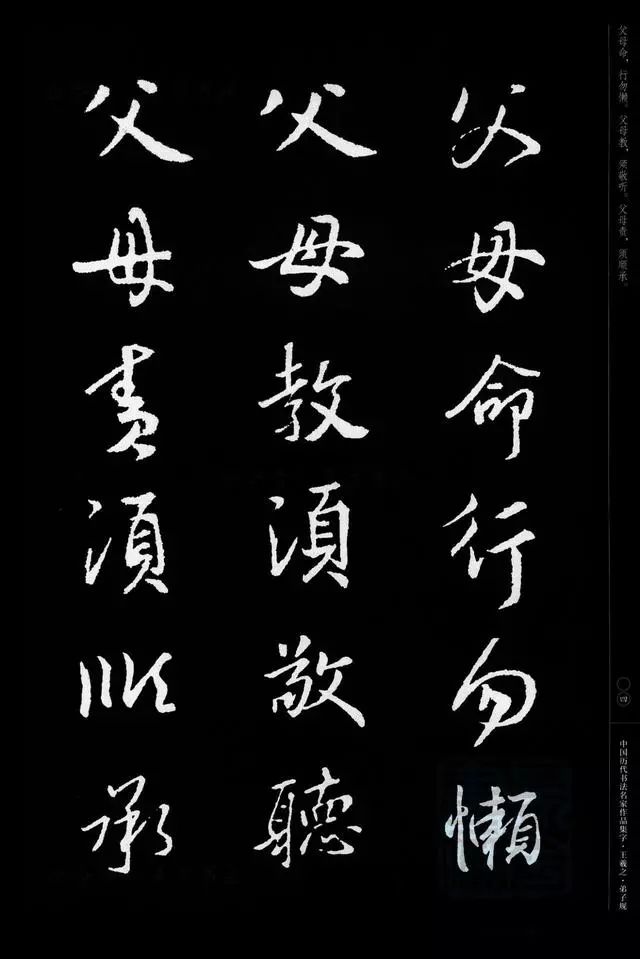 父母命行勿懒
父母教須敬聽
父母責須順承
父母命，行勿懒。父母教，须敬听。父母责，须顺承。
〇四
中国历代书法名家作品集字·王羲之·弟子规